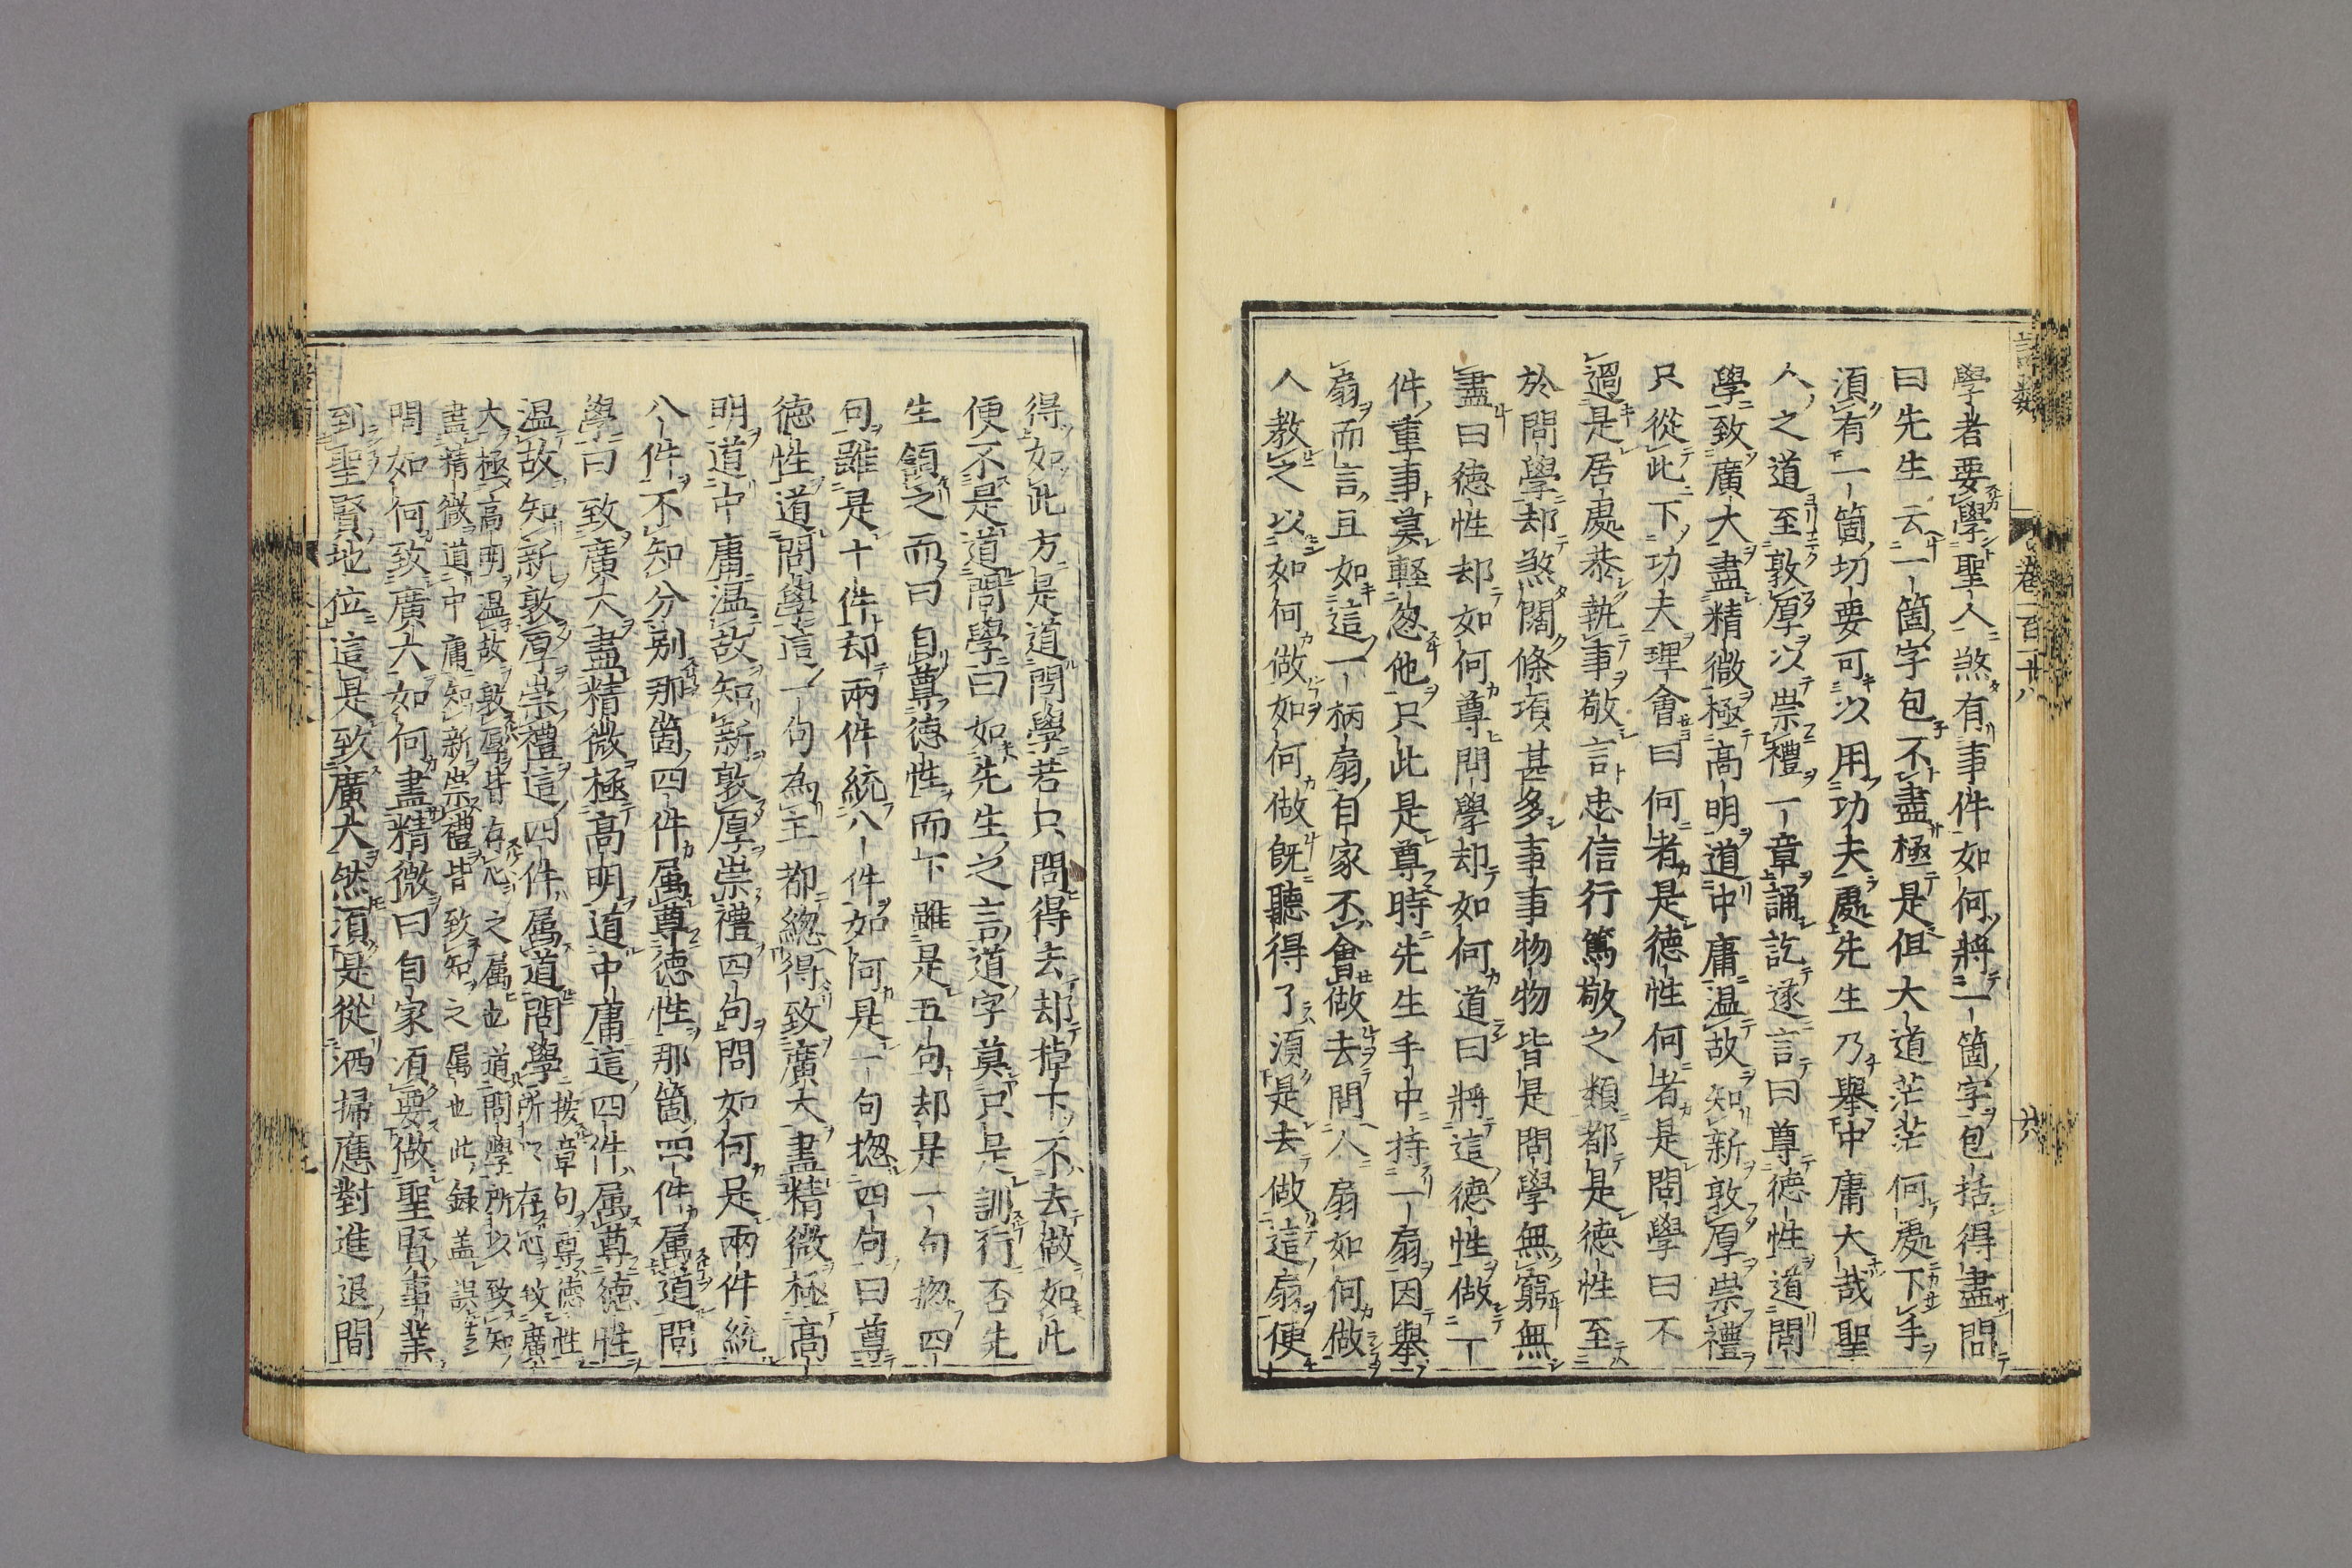 學者要學聖人煞有事件如何將一箇字包括得盡問
曰先生云一箇字包不盡極是但大道茫茫何處下手
須有一箇切要可以用功夫處先生乃舉中庸大哉聖
人之道至敦厚以崇禮一章誦訖遂言曰尊德性道問
學致廣大盡精微極高明道中庸温故知新敦厚崇禮
只從此下功夫理會曰何者是德性何者是問學曰不
過是居處恭執事敬言忠信行篤敬之類都是德性至
於問學却煞闊條項甚多事事物物皆是問學無窮無
盡曰德性却如何尊問學却如何道曰將這德性做一
件重事莫輕忽他只此是尊時先生手中持一扇因舉
扇而言且如這一柄扇自家不會做去問人扇如何做
人教之以如何做如何做既聽得了須是去做這扇便
得如此方是道問學若只問得去却掉下不去做如此
便不是道問學曰如先生之言道字莫只是訓行否先
生頷之而曰自尊德性而下雖是五句却是一句揔四
句雖是十件却兩件統八件如何是一句揔四句曰尊
德性道問學這一句為主都總得致廣大盡精微極高
明道中庸温故知新敦厚崇禮四句問如何是兩件統
八件不知分別那箇四件屬尊德性那箇四件屬道問
學曰致廣大盡精微極高明道中庸這四件屬尊德性
温故知新敦厚崇禮這四件屬道問學按章句尊德性
所以存心致廣
大極高明温故敦厚皆存心之屬也道問學所以致知
盡精微道中庸知新崇禮皆致知之屬也此錄盖誤
問如何致廣大如何盡精微曰自家須要做聖賢事業
到聖賢地位這是致廣大然須是從洒掃應對進退間
卷一百一十八
六